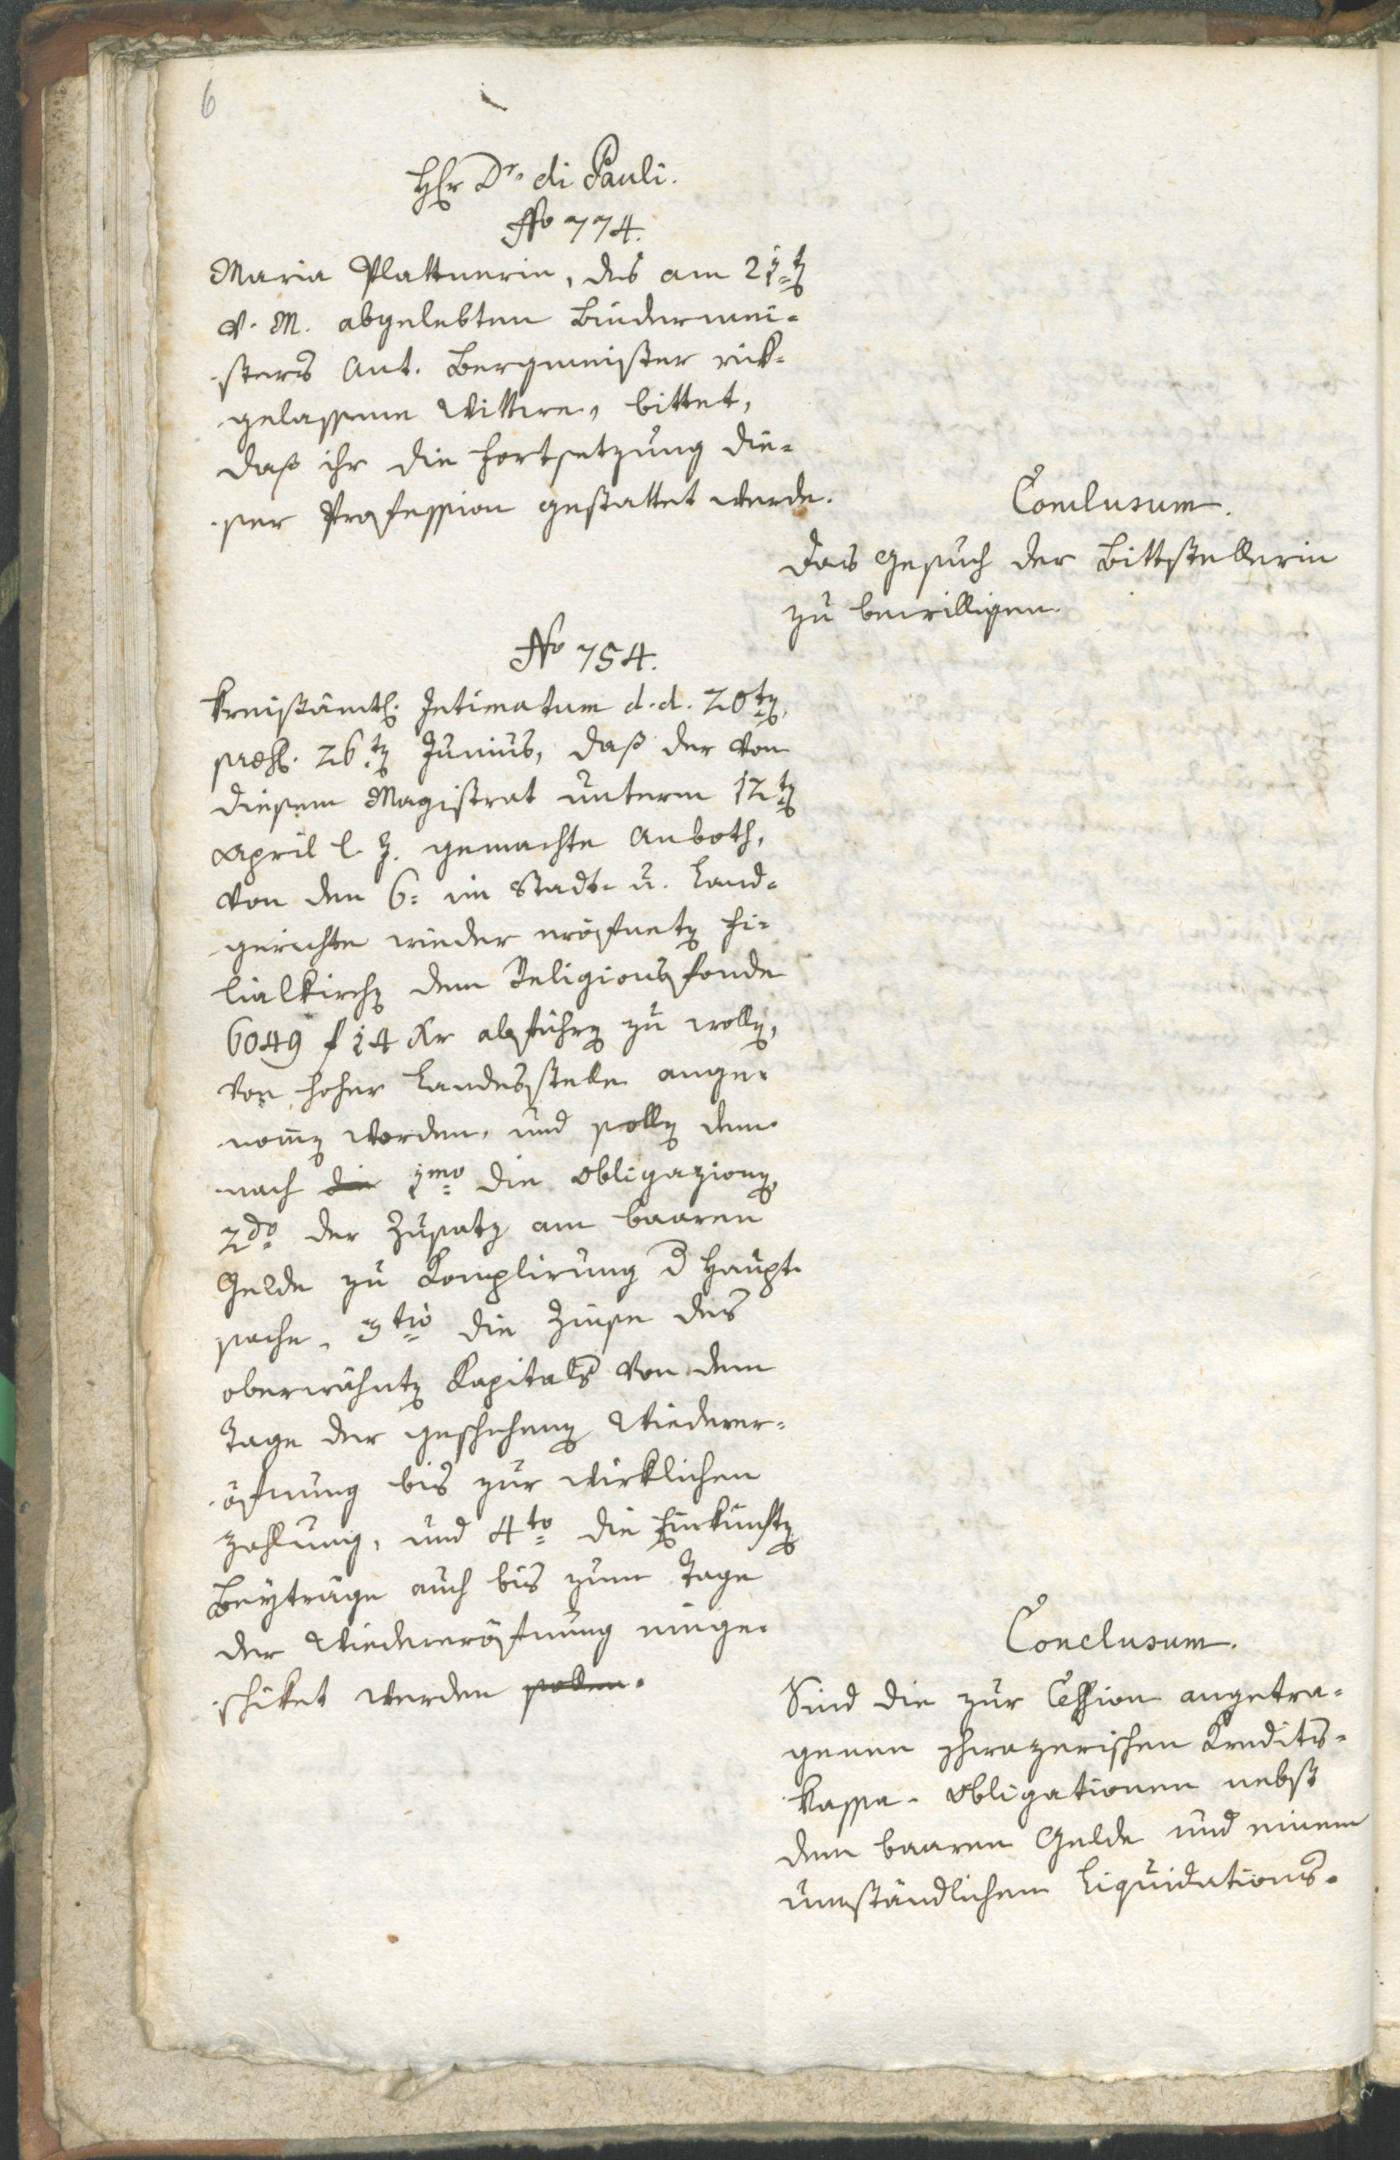 6
Hr Dr. di Pauli.
No 774.
Maria Plattnerin, des am 21ten
v. M. abgelebten Bindermei-
sters Ant. Bergmeister rük-
gelassene Wittwe, bittet,
daß ihr die Fortsetzung die-
ser Profession gestattet werde.
Conclusum.
Das Gesuch der Bittstellerin
zu bewilligen.
No 754.
Kreisämtl. Intimatum d. d. 20ten,
präs. 26ten Junius, daß der von
diesem Magistrat unterm 12ten
April l. J. gemachte Anboth,
von den 6: im Stadt- u. Land-
gerichte wieder eröfneten Fi-
lialkirchen dem Religionsfonde
6049 f 14 Xr abführen zu wollen,
von hoher Landesstelle ange-
nomen worden, und sollen dem-
nach die 1mo die Obligazionen,
2do der Zusatz am baaren
Gelde zu Komplirung d Haupt-
sache, 3tio die Zinse des
oberwähnten Kapitals von dem
Tage der geschehenen Wiederer-
öfnung bis zur wirklichen
Zahlung, und 4to die Einkünften
Beyträge auch bis zum Tage
der Wiedereröfnung einge-
schiket werden sollen.
Conclusum.
Sind die zur Cession angetra-
genen schwazerischen Kredits-
kassa-Obligationen nebst
dem baaren Gelde und einem
umständlichem Liquidations-